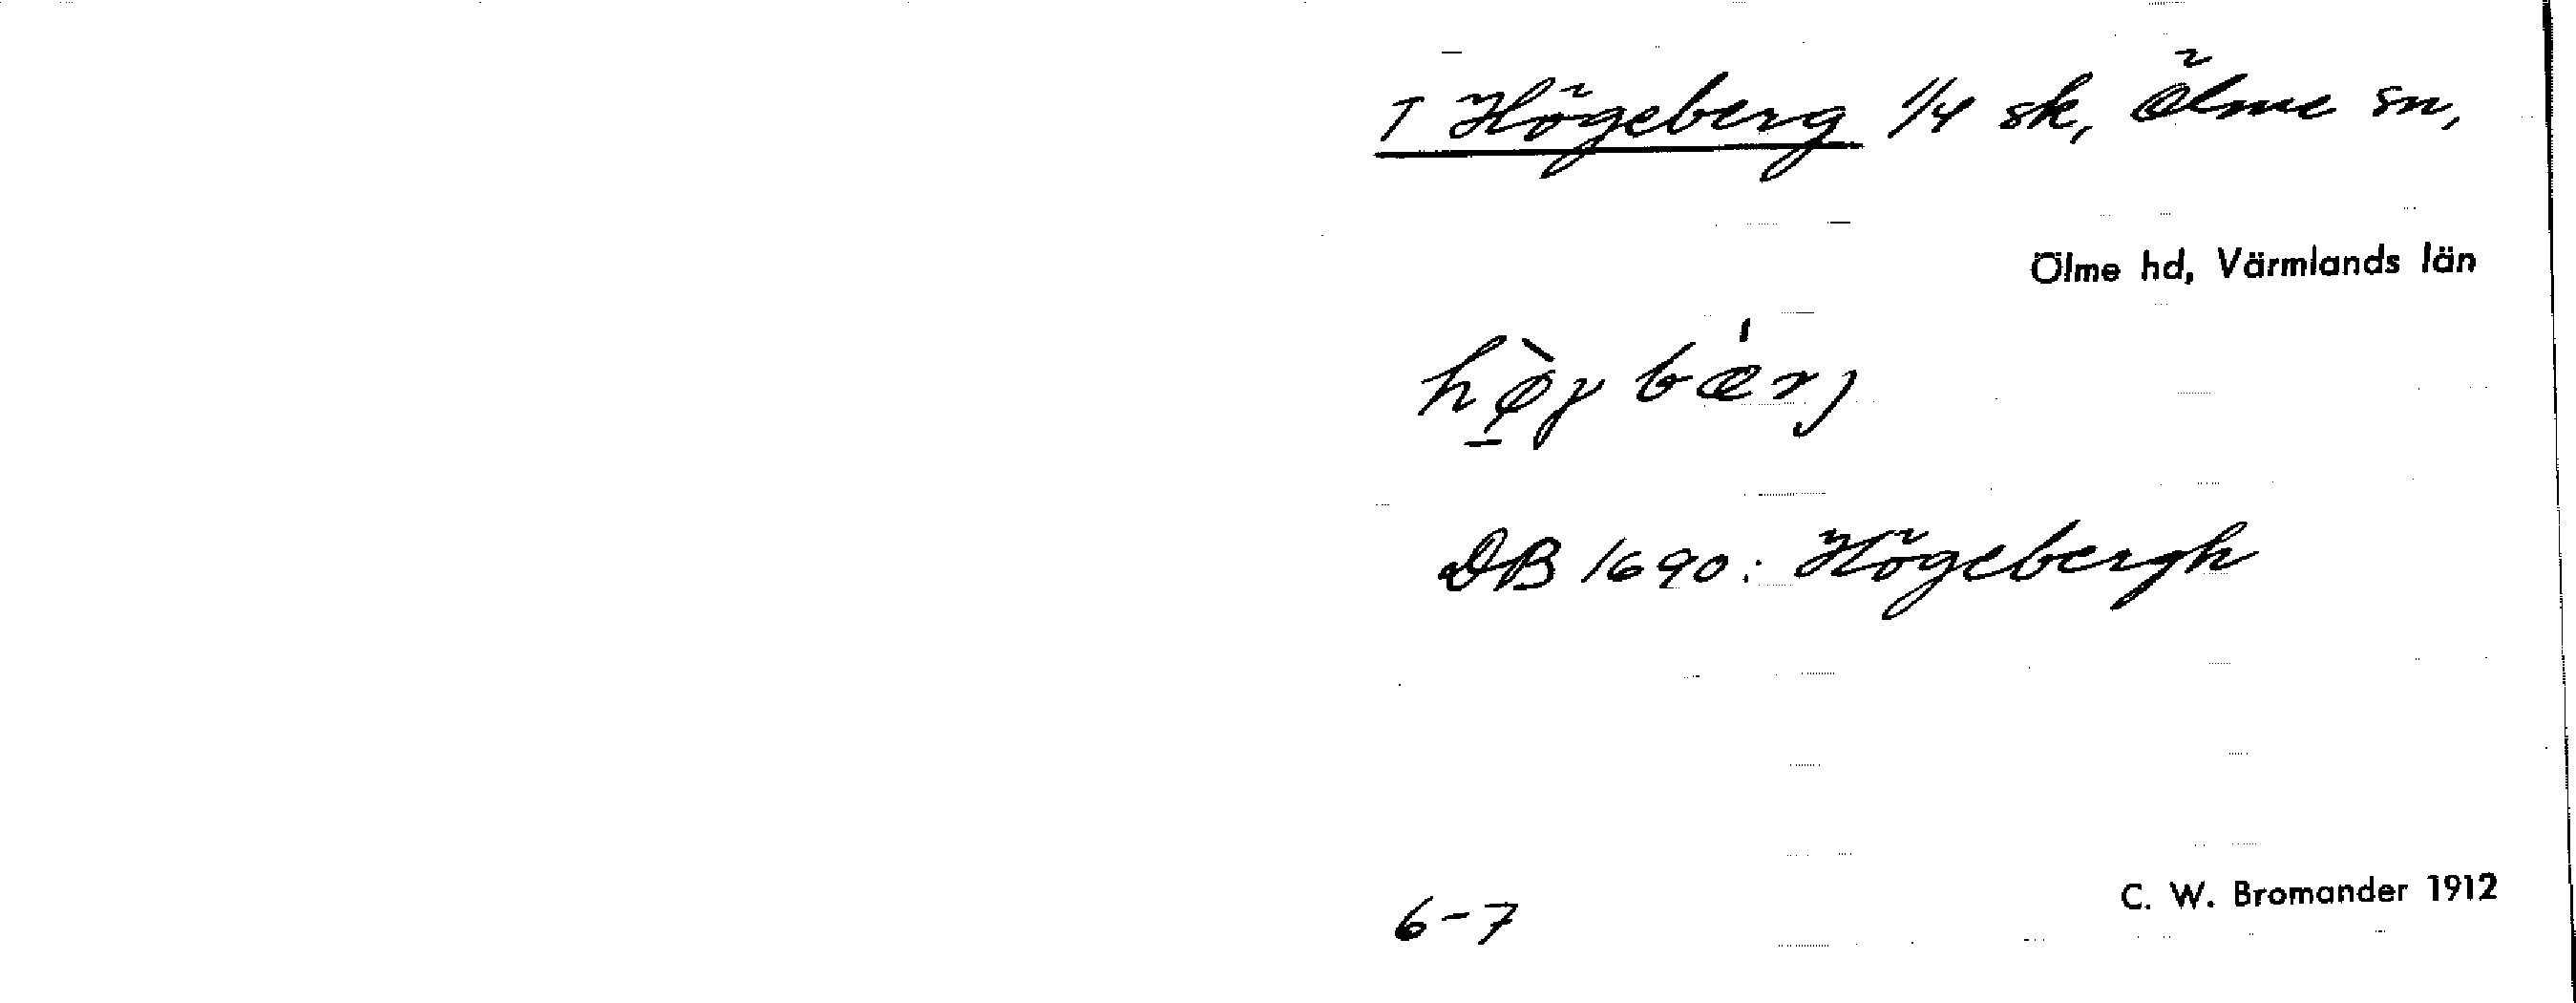 T Högeberg 1/4 sk, Ölme sn,
Ölme hd, Värmlands län
hø̱̀y bæ̍rj
DB 1690: Högebergh
6-7
C. W. Bromander 1912